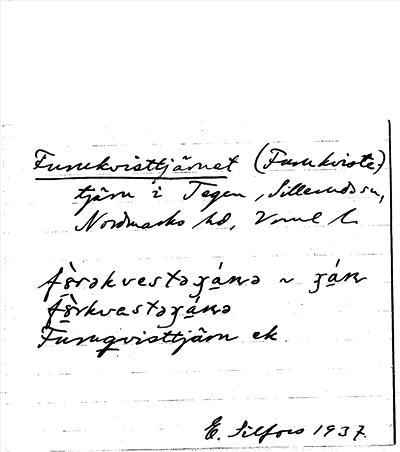 Furukvisttjärnet (Furukviste-)
tjärn i Tegen, Silleruds sn,
Nordmarks hd, Vrml l.
fø̀rəkvestəχánə ~ χán
fø̀rkvastəχánə
Furuqvisttjärn ek.
E. Silfors 1937.